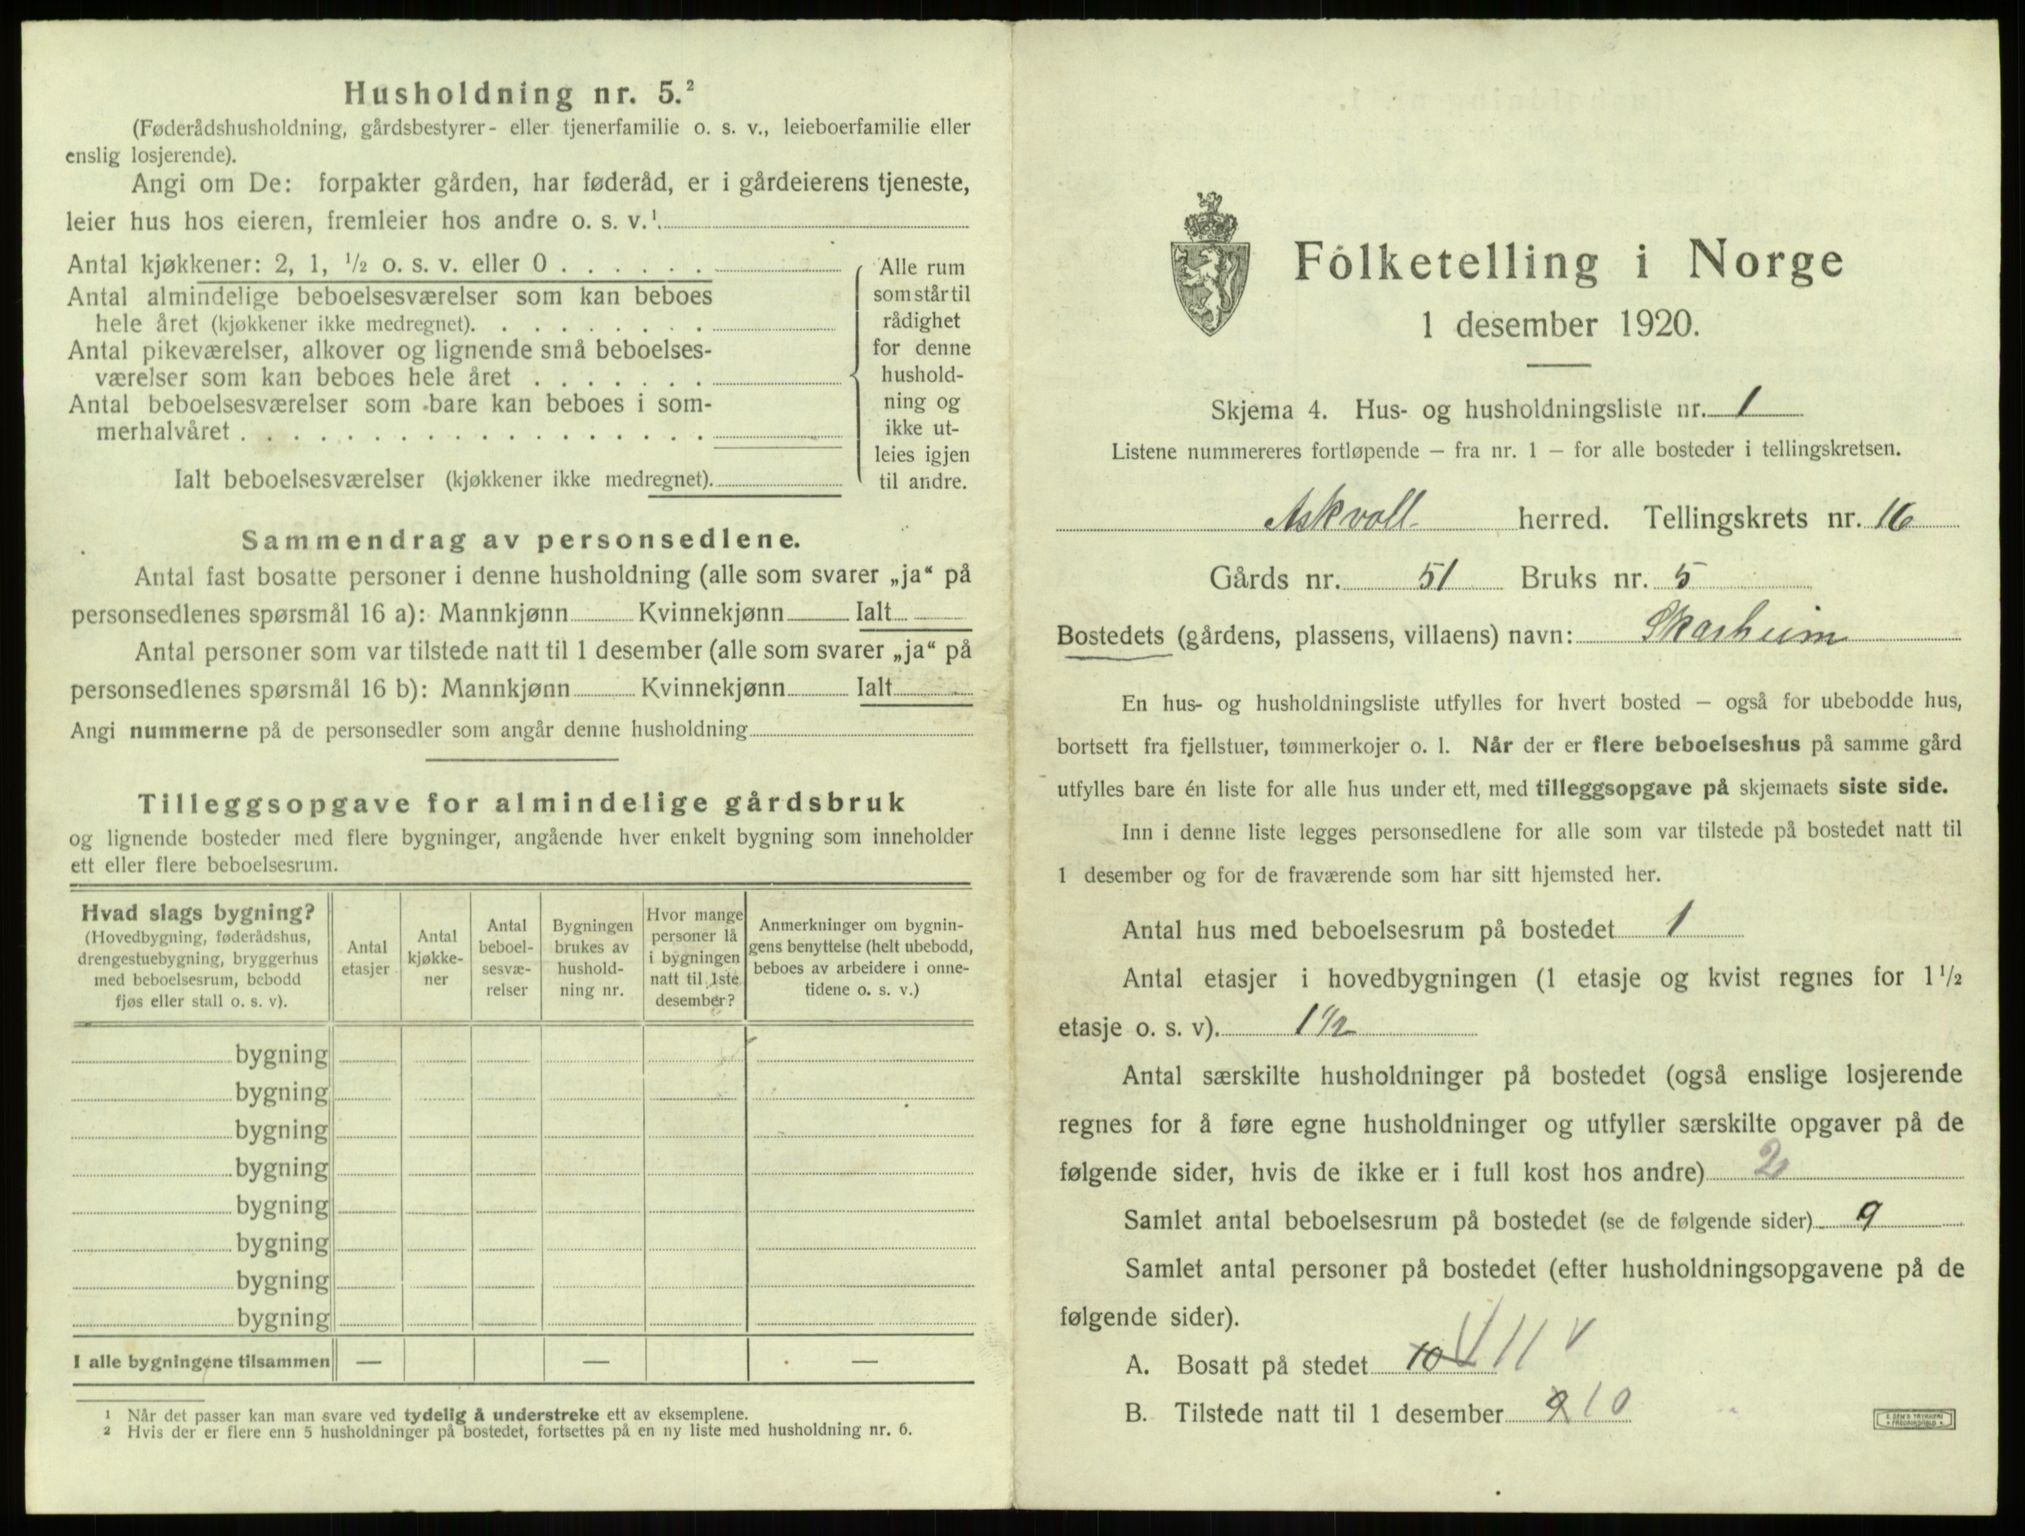 Husholdning nr. 5.²
(Føderådshusholdning, gårdsbestyrer- eller tjenerfamilie o. s. v., leieboerfamilie eller
enslig losjerende).
Angi om De: forpakter gården, har føderåd, er i gårdeierens tjeneste,
leier hus hos eieren, fremleier hos andre o. s. v.¹
Antal kjøkkener: 2, 1, ½ o. s. v. eller 0
Antal almindelige beboelsesværelser som kan beboes
hele året (kjøkkener ikke medregnet).
Antal pikeværelser, alkover og lignende små beboelses-
værelser som kan beboes hele året
Antal beboelsesværelser som bare kan beboes i som-
merhalvåret
Ialt beboelsesværelser (kjøkkener ikke medregnet).
Alle rum
som står til
rådighet
for denne
hushold-
ning og
ikke ut-
leies igjen
til andre.
Sammendrag av personsedlene.
Antal fast bosatte personer i denne husholdning (alle som svarer „ja“ på
personsedlenes spørsmål 16 a): Mannkjønn Kvinnekjønn Ialt
Antal personer som var tilstede natt til 1 desember (alle som svarer „ja“ på
personsedlenes spørsmål 16 b): Mannkjønn Kvinnekjønn Ialt
Angi nummerne på de personsedler som angår denne husholdning
Tilleggsopgave for almindelige gårdsbruk
og lignende bosteder med flere bygninger, angående hver enkelt bygning som inneholder
ett eller flere beboelsesrum.
Hvad slags bygning?
(Hovedbygning, føderådshus,
drengestuebygning, bryggerhus
med beboelsesrum, bebodd
fjøs eller stall o. s. v).
Antal
etasjer
Antal
kjøkke-
ner
Antal
beboel-
sesvæ-
relser
Bygningen
brukes av
hushold-
ning nr.
Hvor mange
personer lå
i bygningen
natt til 1ste
desember?
Anmerkninger om bygnin-
gens benyttelse (helt ubebodd,
beboes av arbeidere i onne-
tidene o. s. v.)
bygning
bygning
bygning
bygning
bygning
bygning
bygning
bygning
I alle bygningene tilsammen — — —
¹ Når det passer kan man svare ved tydelig å understreke ett av eksemplene.
² Hvis der er flere enn 5 husholdninger på bostedet, fortsettes på en ny liste med husholdning nr. 6.
Folketelling i Norge
1 desember 1920.
Skjema 4. Hus- og husholdningsliste nr. 1
Listene nummereres fortløpende — fra nr. 1 — for alle bosteder i tellingskretsen.
Askvoll herred. Tellingskrets nr. 16
Gårds nr. 51 Bruks nr. 5
Bostedets (gårdens, plassens, villaens) navn: Skarheim
En hus- og husholdningsliste utfylles for hvert bosted — også for ubebodde hus,
bortsett fra fjellstuer, tømmerkojer o. l. Når der er flere beboelseshus på samme gård
utfylles bare én liste for alle hus under ett, med tilleggsopgave på skjemaets siste side.
Inn i denne liste legges personsedlene for alle som var tilstede på bostedet natt til
1 desember og for de fraværende som har sitt hjemsted her.
Antal hus med beboelsesrum på bostedet 1
Antal etasjer i hovedbygningen (1 etasje og kvist regnes for 1 ½
etasje o. s. v). 1 1/2
Antal særskilte husholdninger på bostedet (også enslige losjerende
regnes for å føre egne husholdninger og utfyller særskilte opgaver på de
følgende sider, hvis de ikke er i full kost hos andre) 2
Samlet antal beboelsesrum på bostedet (se de følgende sider) 9
Samlet antal personer på bostedet (efter husholdningsopgavene på de
følgende sider).
A. Bosatt på stedet 10 11
B. Tilstede natt til 1 desember 9 10